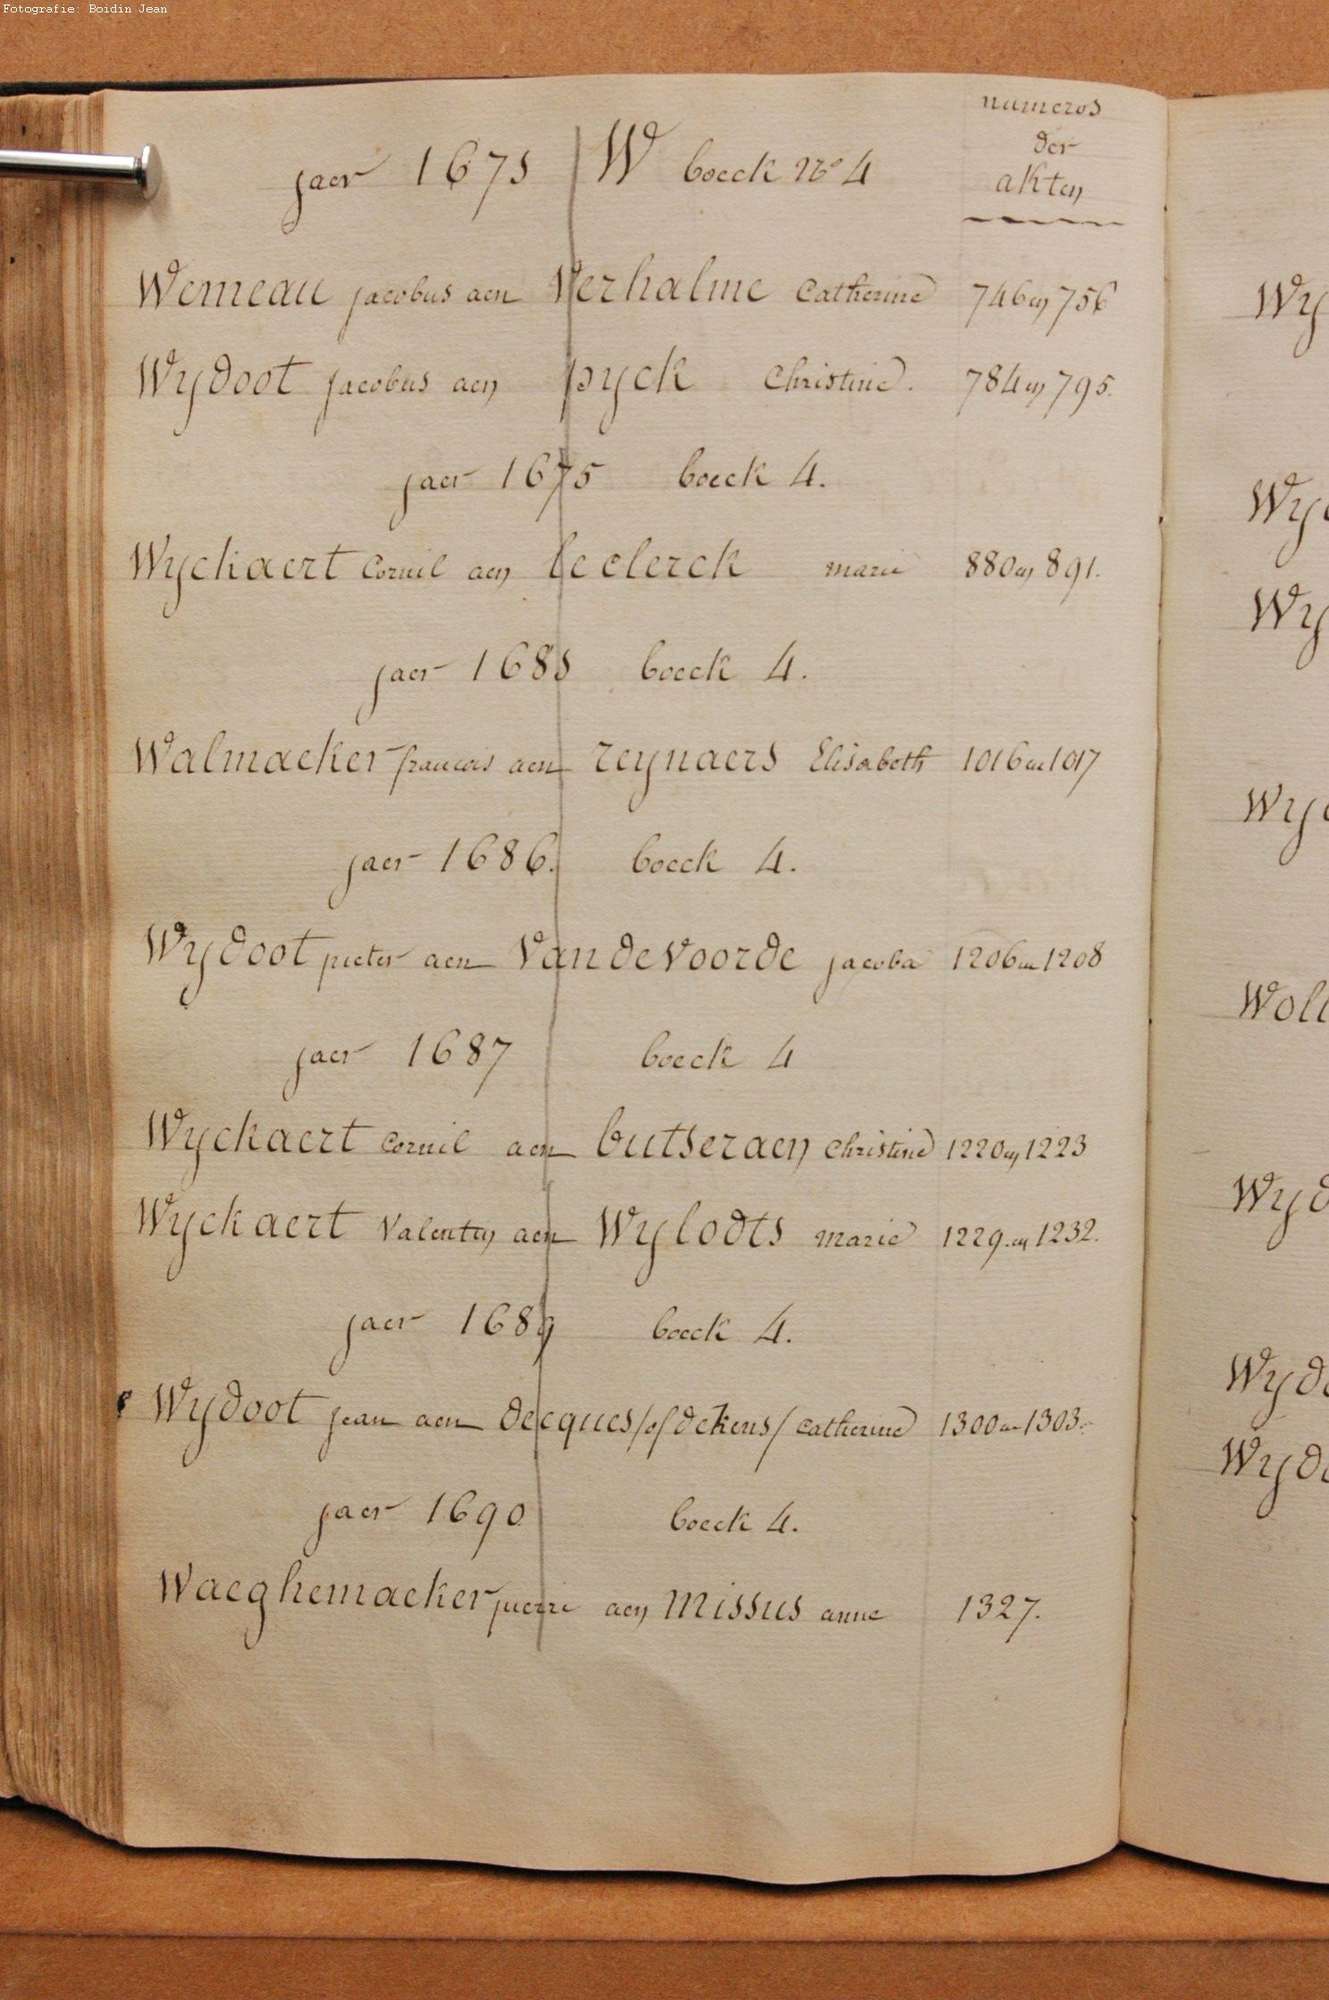 Fotografie: Boidin Jean
numeros
der
akten
jaer 1673 W boeck No 4
Wemeau jacobus aen Verhalme Catherine 746 en 756
Wydoot jacobus aen pyck Christine. 784 en 795.
jaer 1675 boeck 4.
Wyckaert Cornil aen leclerck marie 880 en 891.
jaer 1683 boeck 4.
Walmacker francois aen reynaers Elisabeth 1016 en 1017
jaer 1686. boeck 4.
Wydoot pieter aen Vandevoorde jacoba 1206 en 1208
jaer 1687 boeck 4
Wyckaert Cornil aen butseraen Christine 1220 en 1223
Wyckaert Valentin aen Wylodts marie 1229. en 1232.
jaer 1689 boeck 4.
Wydoot jean aen decques /of dekens/ catherine 1300 en 1303.
jaer 1690 boeck 4.
Waeghemacker pierre aen missus anne 1327.
Wy
Wy
Wy
Wyd
Woll
Wyd
Wydo
Wydo